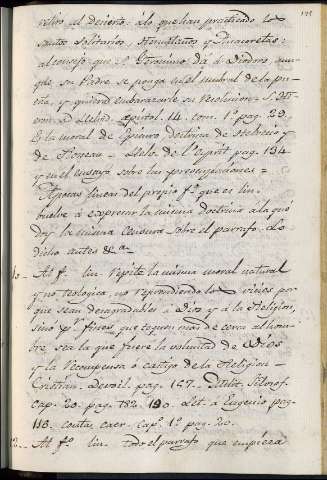 retiro, al Decierto. á lo que han practicado los
santos Solitarios, Hermitaños y Anacoretas:
al consejo que S.n Geronimo dá á Diodoro aun-
que su Padre se ponga en el umbral de la pu-
erta, y quiera embarazarle su resolucion = S. Ge-
ron. á epistol. 14. tom. 1.º pag. 29.
Es la moral de Epicuro doctrina de Helvecio y
de = Helv. de l'Esprit pag. 134
y en el ensayo sobre las preocupaciones =
Apocas lineas del propio f.º que es lin.
buelve á expresar la misma doctrina á la qual
doy la misma Censura sobre el parrafo. Lo
dicho antes &a -
10.. Al f.º lin. repite la misma moral natural
y no teologica, no reprendiendo los vicios por
que sean desagradables á Dios y á la Religion,
sino p.r fisicos que tocan mas de cerca al hom-
bre, sea la que fuere la voluntad de Dios
y la recompensa ó castigo de la Religion
Cristian. Devoil. pag. 157. Filosof.
cap. 20. pag. 182. 190. Let. á Eugenio pag.
118. contas. caer. Cap. 1.º pag. 20.
12.. Al f.º lin. todo el parrafo que empieza